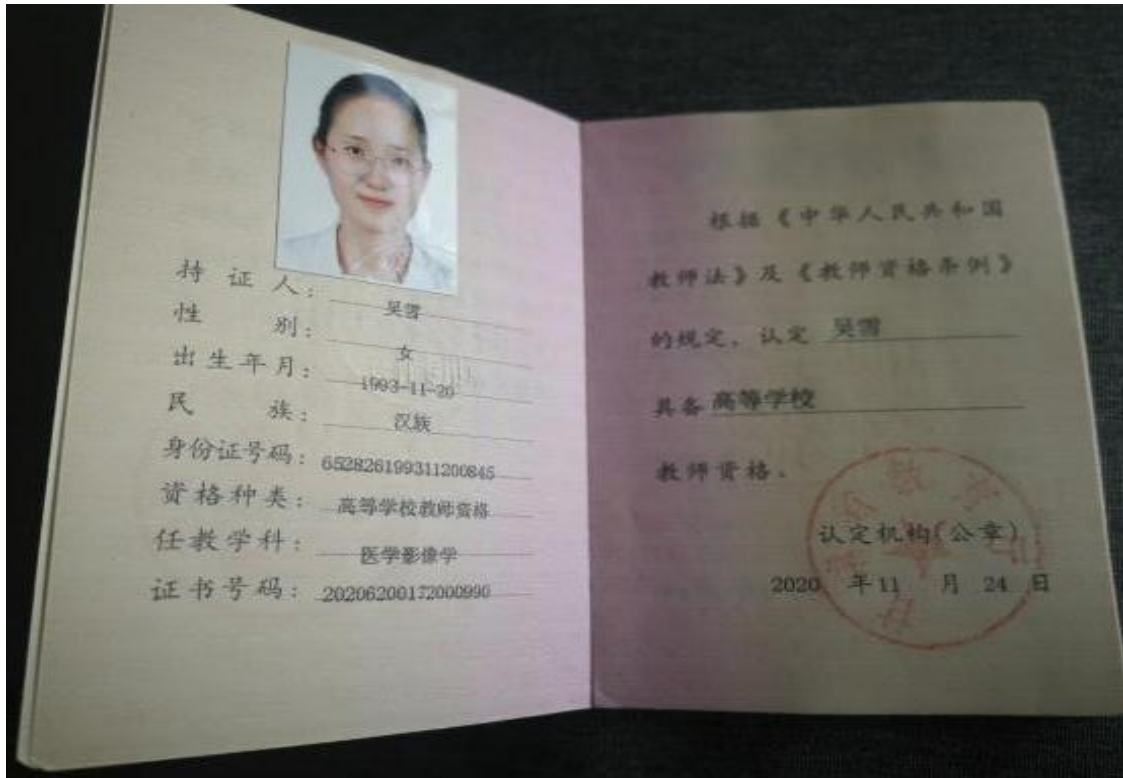 持证人：吴雪
性别：女
出生年月：1993-11-20
民族：汉族
身份证号码：652826199311200845
资格种类：高等学校教师资格
任教学科：医学影像学
证书号码：20206200172000990
根据《中华人民共和国
教师法》及《教师资格条例》
的规定，认定 吴雪
具备 高等学校
教师资格。
认定机构(公章)
2020 年 11 月 24 日